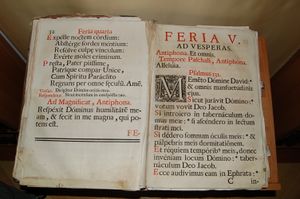 32
Feria quarta
Expelle noctem cordium:
Abstérge sordes mentium:
Resólve culpæ vinculum:
Evérte moles criminum.
Præsta, Pater piíssime,
Patríque compar Unice,
Cum Spíritu Paráclito
Regnans per omne sæculum. Amen.
Ad Magnificat, Antiphona.
Respéxit Dóminus humilitátem
meam, & fecit in me magna, qui po-
tens est.
FE-
FERIA V.
AD VESPERAS.
Antiphona. Et omnis.
Tempore Paschali, Antiphona.
Alleluia.
Psalmus 131.
MEménto Dómine David:*
& omnis mansuetúdinis
ejus.
Sicut jurávit Dómino:*
votum vovit Deo Jacob.
Si introíero in tabernáculum do-
mus meæ:* si ascéndero in lectum
strati mei.
Si dédero somnum óculis meis:* &
pálpebris meis dormitatiónem.
Et réquiem tempóribus meis, donec
invéniam locum Dómino:* taber-
náculum Deo Jacob.
Ecce audívimus eam in Ephrata:*
in-